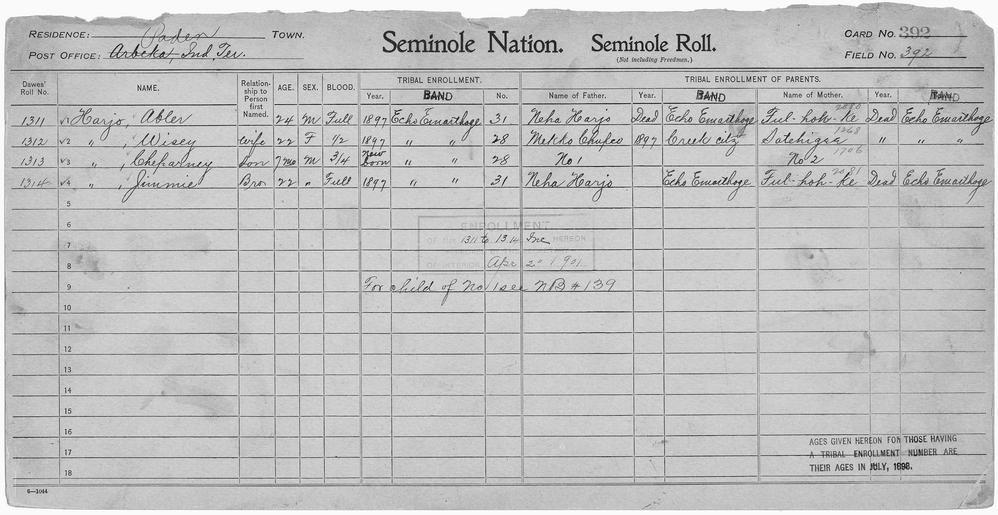 RESIDENCE: Paden TOWN. Seminole Nation. Seminole Roll. CARD NO. 392
POST OFFICE: Arbeka, Ind. Ter. (Not including Freedmen.) FIELD NO. 392
Dawes' Roll No. NAME. Relationship to Person first Named. AGE. SEX. BLOOD. TRIBAL ENROLLMENT. TRIBAL ENROLLMENT OF PARENTS.
Year. BAND No. Name of Father. Year. BAND Name of Mother. Year. BAND
1311 √1 Harjo, Abler 24 M Full 1897 Echo Emarthoge 31 Neha Harjo Dead Echo Emarthoge Ful-hok-ke Dead Echo Emarthoge
1312 √2 " , Wisey Wife 22 F 1/2 1897 " " 28 Mekko Chupco 1897 Creek citz 1268 " "
1313 √3 " , Cheparney Son 7mo M 3/4 New Born " " 28 No 1 No 2 1706
1314 √4 " , Jimmie Bro 22 " Full 1897 " " 31 Neha Harjo Echo Emarthoge Ful-hoh-ke Dead Echo Emarthoge
5
6
ENROLLMENT
7 OF NOS 1311 to 1314 Inc HEREON
8 OF INTERIOR Apr 2 1901
9 For child of No 1 see NB # 139
10
11
12
13
14
15
16
17
18
AGES GIVEN HEREON FOR THOSE HAVING
A TRIBAL ENROLLMENT NUMBER ARE
THEIR AGES IN JULY, 1898.
6—1044